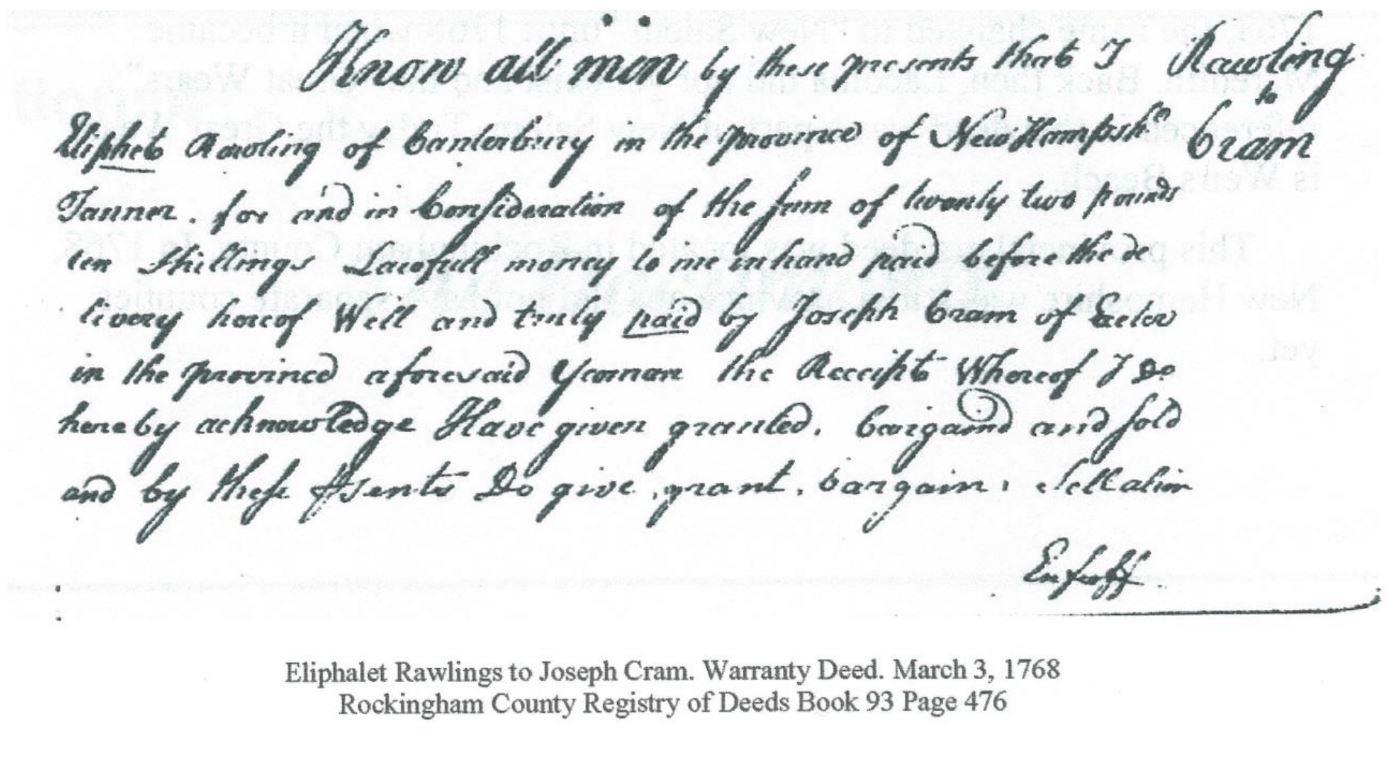 Know all men by these presents that I Rawling
to
Eliphet Rawling of Canterbury in the province of New Hampshr Cram
Tanner. for and in Consideration of the sum of twenty two pounds
ten Shillings Lawfull money to me in hand paid before the de
livery hereof Well and truly paid by Joseph Cram of Exeter
in the province aforesaid Yeoman the Receipt Whereof I Do
hereby acknowledge Have given granted, bargaind and sold
and by these Do give, grant, bargain, Sell alien
Enfeoff.
Eliphalet Rawlings to Joseph Cram. Warranty Deed. March 3, 1768
Rockingham County Registry of Deeds Book 93 Page 476